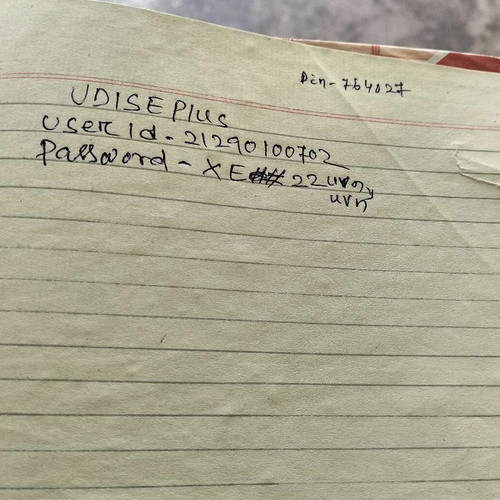 Pin - 764027
UDISE Plus
User Id - 21290100702
Password - XE 22
uvn